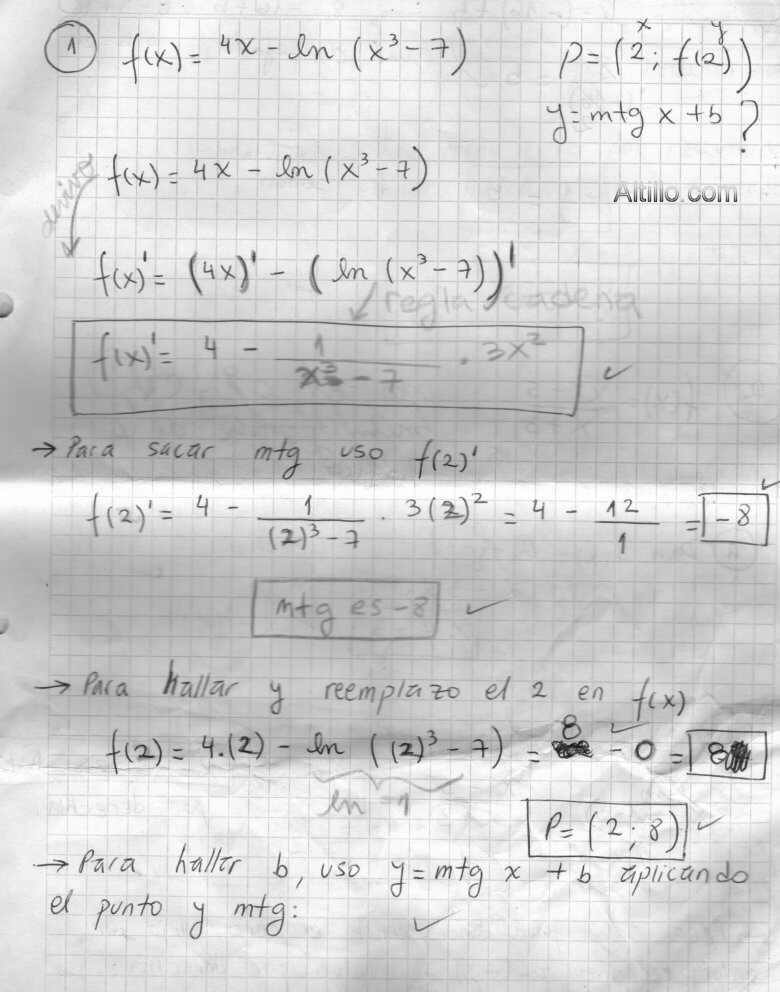 1 f(x) = 4x - ln (x³ - 7)
x y
P = (2; f(2))
y = mtg x + b ?
Altillo.com
f(x) = 4x - ln (x³ - 7)
derivo
f(x)' = (4x)' - (ln (x³ - 7))'
regla cadena
f(x)' = 4 - 1/(x³ - 7) . 3x² ✓
→ Para sacar mtg uso f(2)'
f(2)' = 4 - 1/((2)³ - 7) . 3(2)² = 4 - 12/1 = -8 ✓
mtg es -8 ✓
→ Para hallar y reemplazo el 2 en f(x)
f(2) = 4.(2) - ln ((2)³ - 7) = 8 - 0 = 8 ✓
ln 1
P = (2; 8) ✓
→ Para hallar b, uso y = mtg x + b aplicando
el punto y mtg: ✓